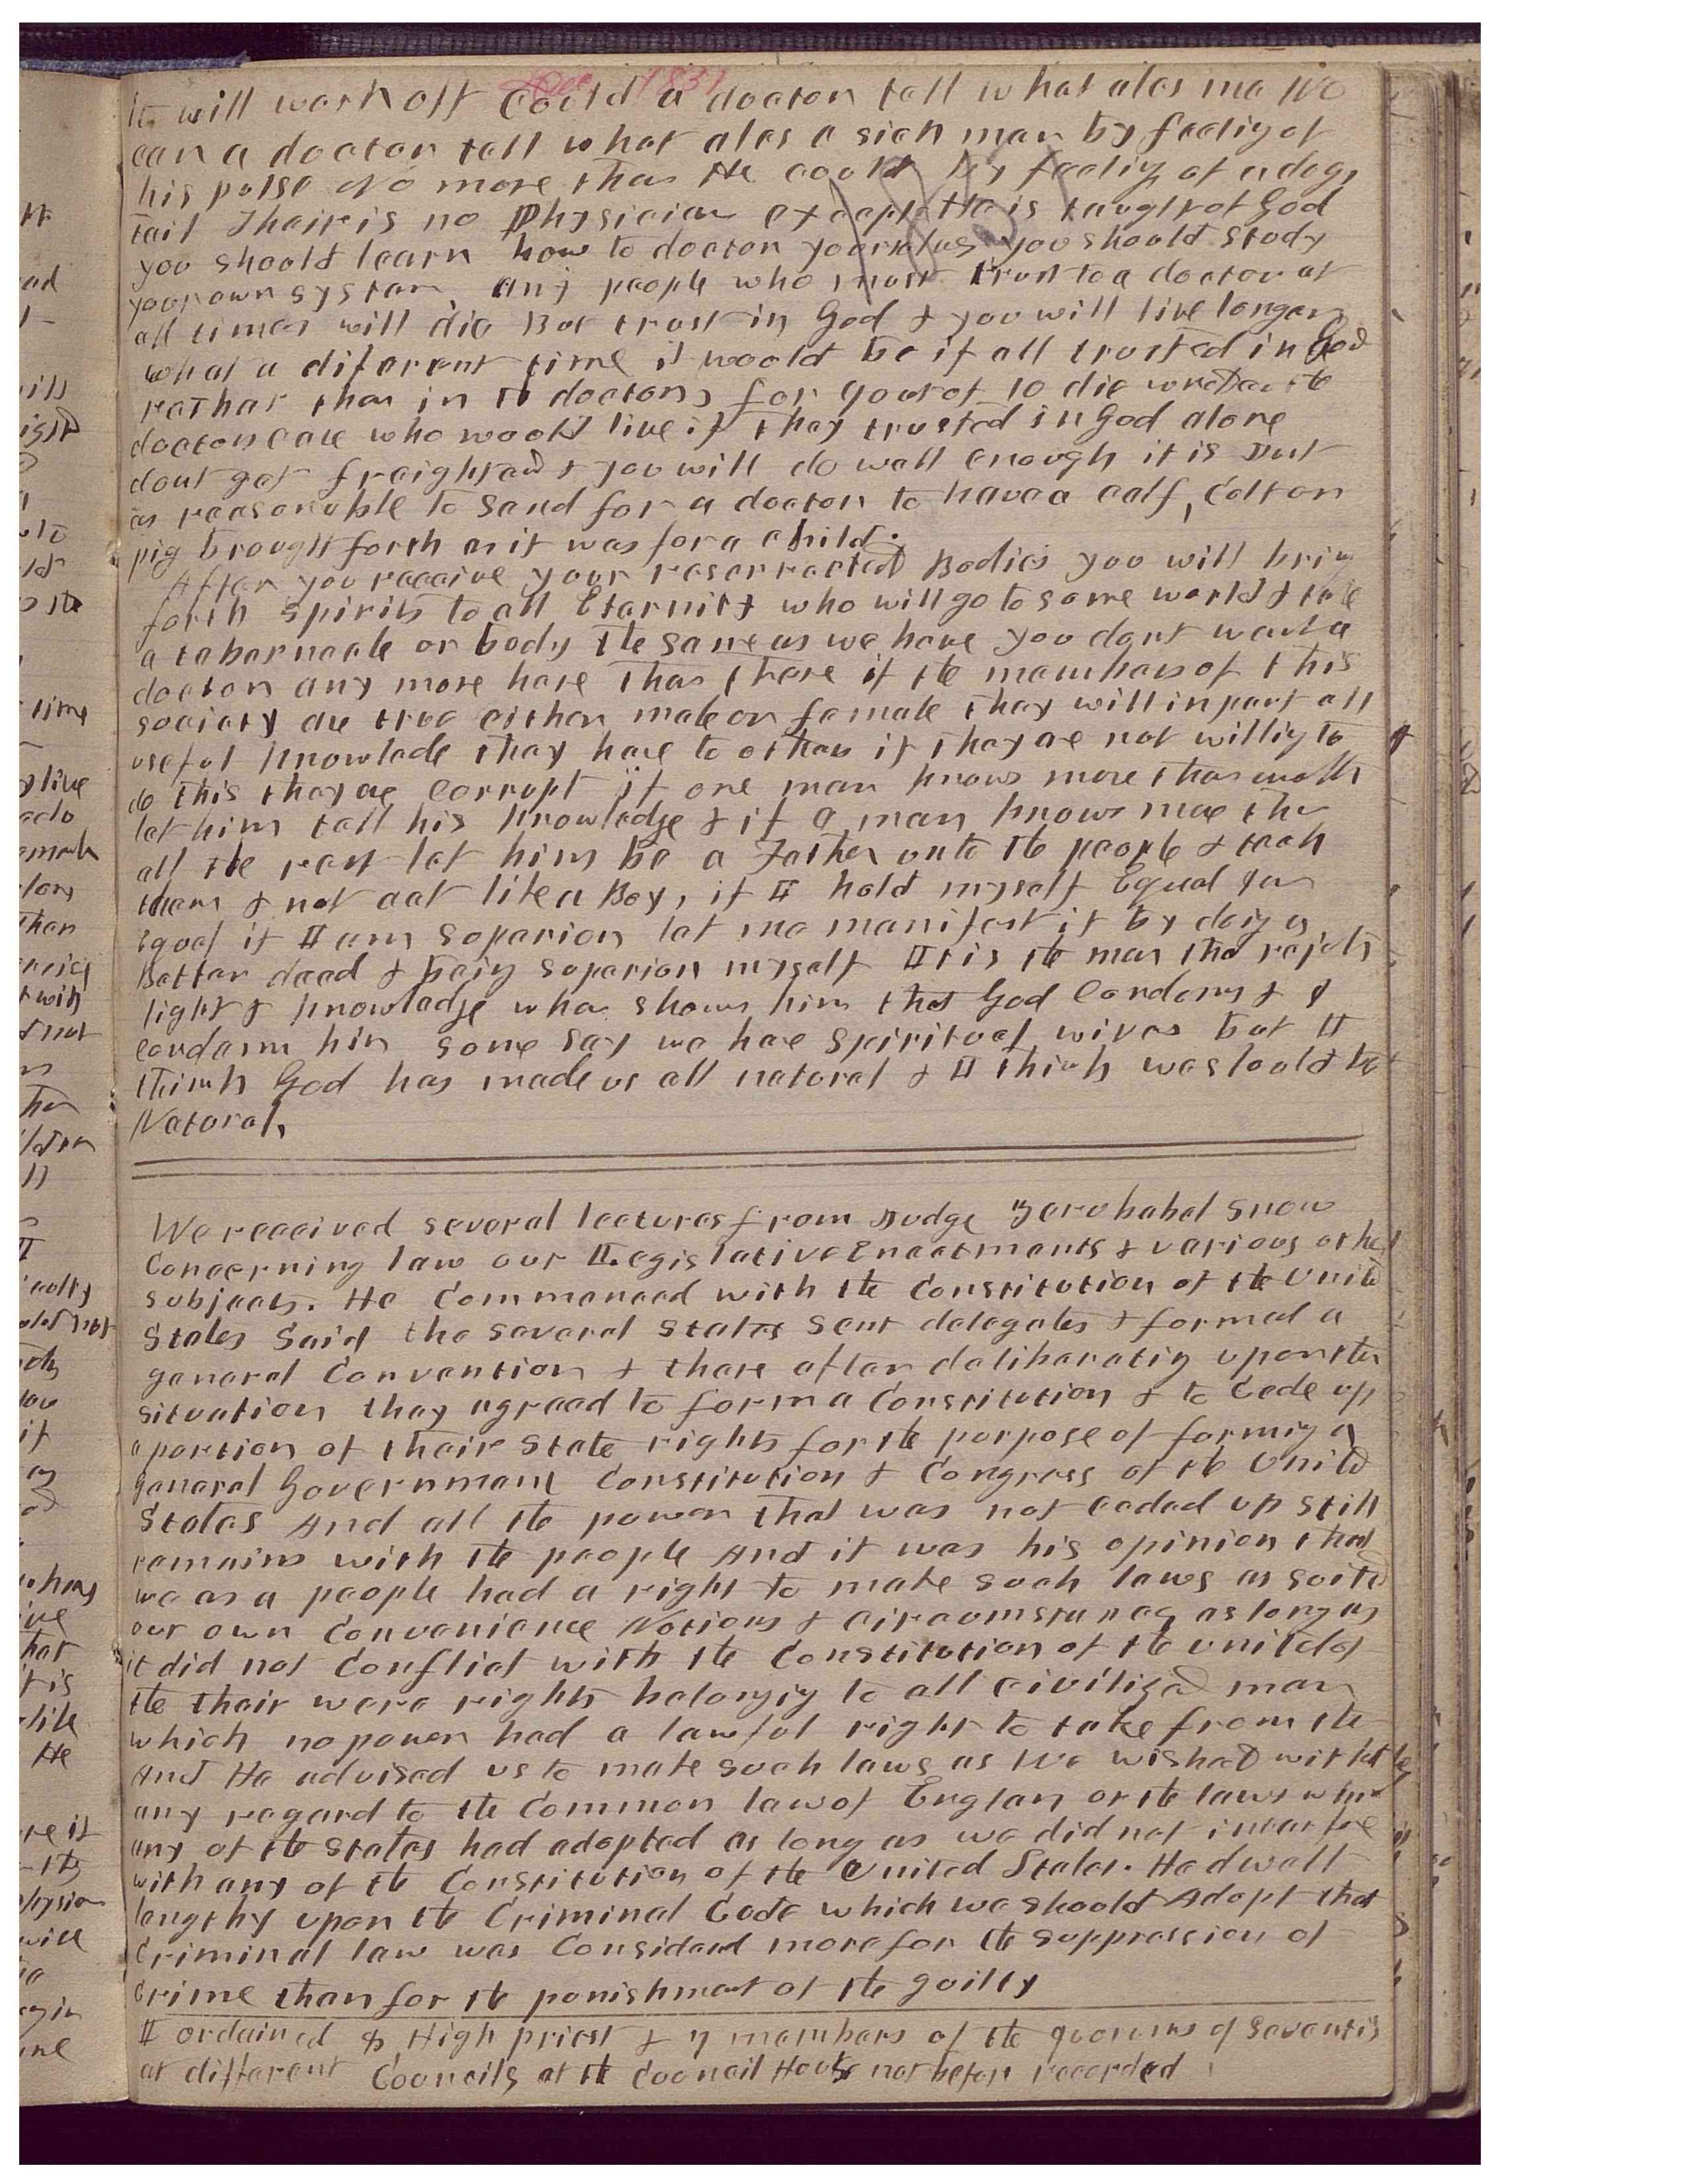 Dec 1851
It will work off Could a doctor tell what ales me No
can a doctor tell what ales a sick man by feeling of
his pulse No more than He could by feeling of a dogs
tail Thair is no Physician except He is taught of God
you should learn how to doctor yourselves you should study
your own system, any people who must trust to a doctor at
all times will die But trust in God & you will live longer
what a different time it would be if all trusted in God
rather than in the doctors for 9 out of 10 die under the
doctors care who would live if they trusted in God alone
dont get freightned & you will do well enough it is Just
as reasonable to send for a doctor to have a calf, Colt or
pig brought forth as it was for a child.
After you receive your reserrected Bodies you will bring
forth spirits to all Eternity who will go to some world & take
a tabernacle or body the same as we have you dont want a
doctor any more here than there if the members of this
society are true either male or female they will inpart all
useful knowlede they have to others if they are not willing to
do this they are Corrupt if one man knows more than
let him tell his knowledge & if a man knows more than
all the rest let him be a Father unto the people & teach
them & not act like a Boy, if I hold myself Equal I am
equal if I am superior let me manifest it by doing a
Better deed & being superior myself It is the man tha rejects
light & knowledge whare shown him that God Condems & I
condemn him some say we have spiritual wives but I
think God has made us all natural & I think we should be
Natural,
We received several lectures from Judge Zerubabel Snow
Concerning law our Legislative Enactments & various other
subjects. He Commenced with the Constitution of the United
States Said the several States sent delegates & formed a
general Convention & there after deliberating upon their
situation they agreed to form a Constitution & to Cede up
a portion of their State rights for the purpose of forming a
general Government Constitution & Congress of the United
States And all the power that was not ceded up still
remains with the people And it was his opinion that
we as a people had a right to make such laws as suited
our own Convenience Notions & circumstances as long as
it did not Conflict with the Constitution of the united
the thair were rights belonging to all civilized man
which no power had a lawful right to take from the
And He advised us to make such laws as we wished without
any regard to the Common law of Englan or the laws which
any of the States had adopted as long as we did not interfere
with any of the Constitution of the United States. He dwelt
lengthy upon the Criminal Code which we should Adopt that
Criminal law was Considered more for the suppression of
Crime than for the punishment of the guilty
I ordained High priest & 7 members of the quorums of Seventies
at different Councils at the Council House not before recorded